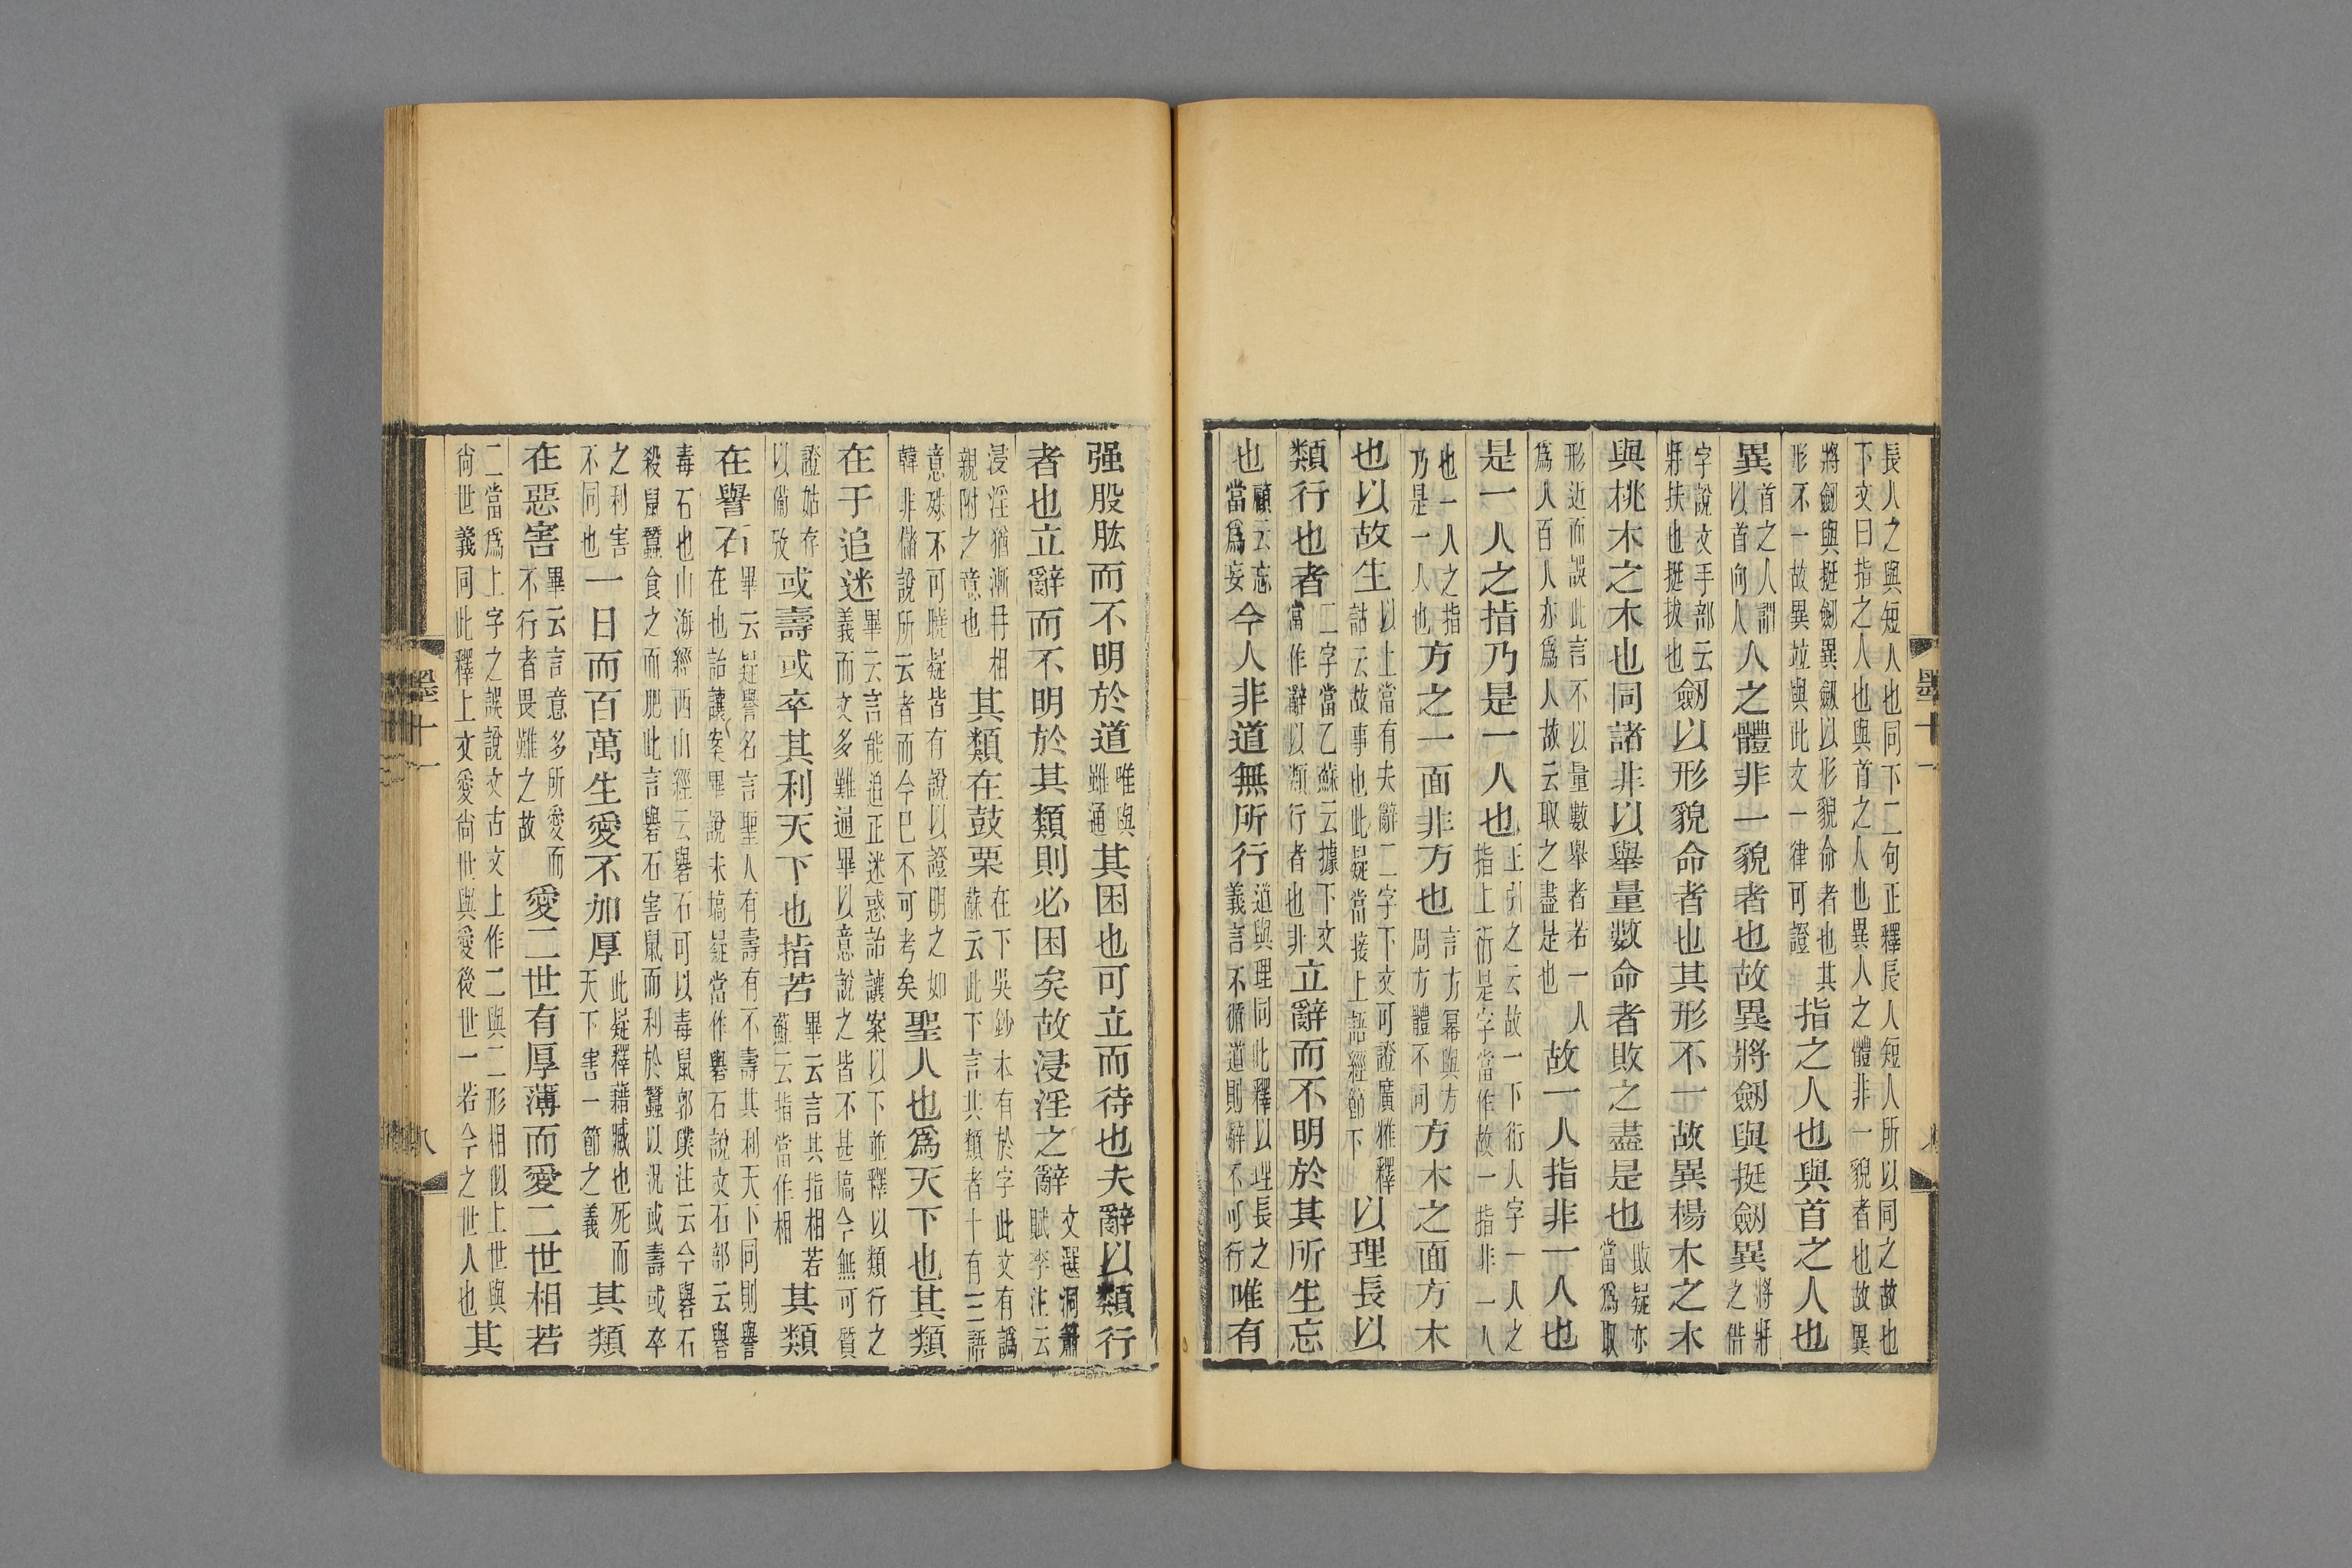 長人之與短人也同下二句正釋長人短人所以同之故也下文曰指之人也與首之人也異人之體非一貌者也故異
將劒與挺劒異劒以形貌命者也其形不一故異竝與此文一律可證指之人也與首之人也
異首之人謂以首向人人之體非一貌者也故異將劒與挺劒異將牂之借
字說文手部云牂扶也挺拔也劒以形貌命者也其形不一故異楊木之木
與桃木之木也同諸非以舉量數命者敗之盡是也敗疑亦當爲取
形近而誤此言不以量數舉者若一人爲人百人亦爲人故云取之盡是也故一人指非一人也
是一人之指乃是一人也王引之云故一下衍人字一人之指上衍是字當作故一指非一人
也一人之指乃是一人也方之一面非方也言方冪與方周方體不同方木之面方木
也以故生以上當有夫辭二字下文可證廣雅釋詁云故事也此疑當接上語經節下以理長以
類行也者二字當乙蘇云據下文當作辭以類行者也非立辭而不明於其所生忘
也顧云忘當爲妄今人非道無所行道與理同此釋以理長之義言不循道則辭不可行唯有
墨十一
强股肱而不明於道唯與雖通其困也可立而待也夫辭以類行
者也立辭而不明於其類則必困矣故浸淫之辭文選洞簫賦李注云
浸淫猶漸冄相親附之意也其類在鼓栗在下吳鈔本有於字此文有譌蘇云此下言其類者十有三語
意殊不可曉疑皆有說以證明之如韓非儲說所云者而今已不可考矣聖人也爲天下也其類
在于追迷畢云言能追正迷惑詒讓案以下竝釋以類行之義而文多難通畢以意說之皆不甚塙今無可質
證姑存以備攷或壽或卒其利天下也指若畢云言其指相若蘇云指當作相其類
在譽石畢云疑譽名言聖人有壽有不壽其利天下同則譽在也詒讓案畢說未塙疑當作礜石說文石部云礜
毒石也山海經西山經云礜石可以毒鼠郭璞注云今礜石殺鼠蠶食之而肥此言礜石害鼠而利於蠶以況或壽或卒
之利害不同也一日而百萬生愛不加厚此疑釋藉臧也死而天下害一節之義其類
在惡害畢云言意多所愛而不行者畏難之故愛二世有厚薄而愛二世相若
二當爲上字之誤說文古文上作二與二形相似上世與尙世義同此釋上文愛尙世與愛後世一若今之世人也其
墨十一
八